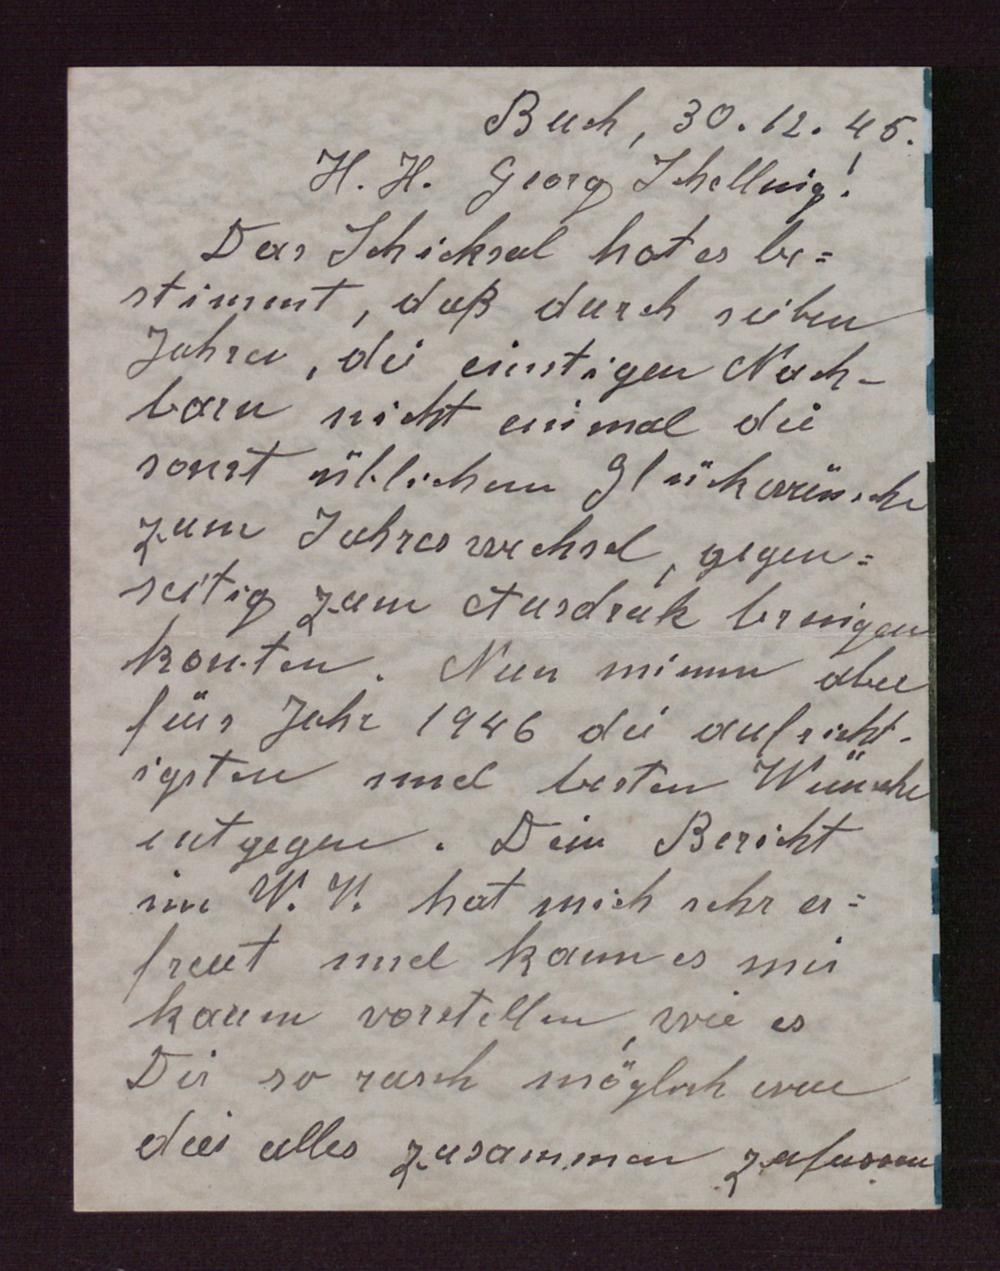 Buch, 30.12.45.
H. H. Georg Schelling!
Das Schicksal hat es be=
stimmt, daß durch sieben
Jahren, die einstigen Nach-
barn nicht einmal die
sonst üblichen Glückwünsche
zum Jahreswechsel, gegen=
seitig zum Ausdruk bringen
konten. Nun nimm aber
fürs Jahr 1946 die aufricht-
igsten und besten Wünsche
entgegen. Dein Bericht
im V. V. hat mich sehr er=
freut und kann es mir
kaum vorstellen, wie es
Dir so rasch möglich war
dies alles zusammen zufassen